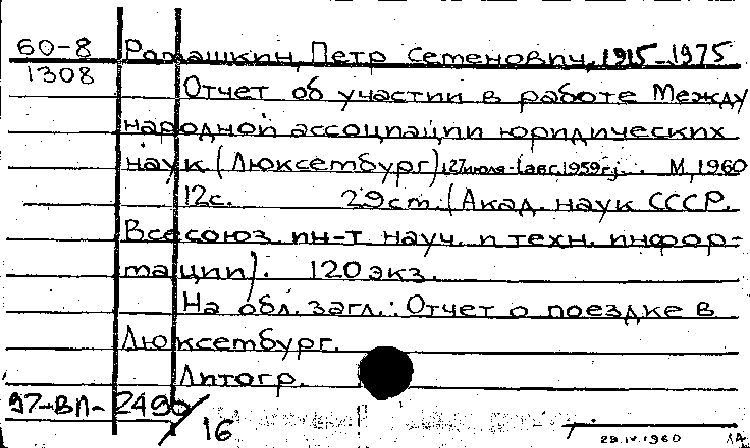 60-8 Ромашкин, Петр Семенович, 1915-1975
1308
Отчет об участии в работе Между
народной ассоциации юридических
наук (Люксембург), 27 июля - 1 авг. 1959 г. М, 1960
12с. 29 см. (Акад. наук СССР.
Всесоюз. ин-т науч. и техн. инфор-
мации). 120 экз.
На обл. загл.: Отчет о поездке в
Люксембург.
Литогр.
97-ВЛ- 2490/16
29.IV.1960